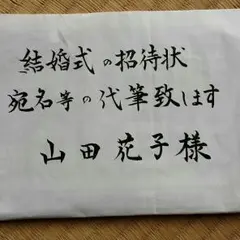 結婚式の招待状
宛名等の代筆致します
山田花子様